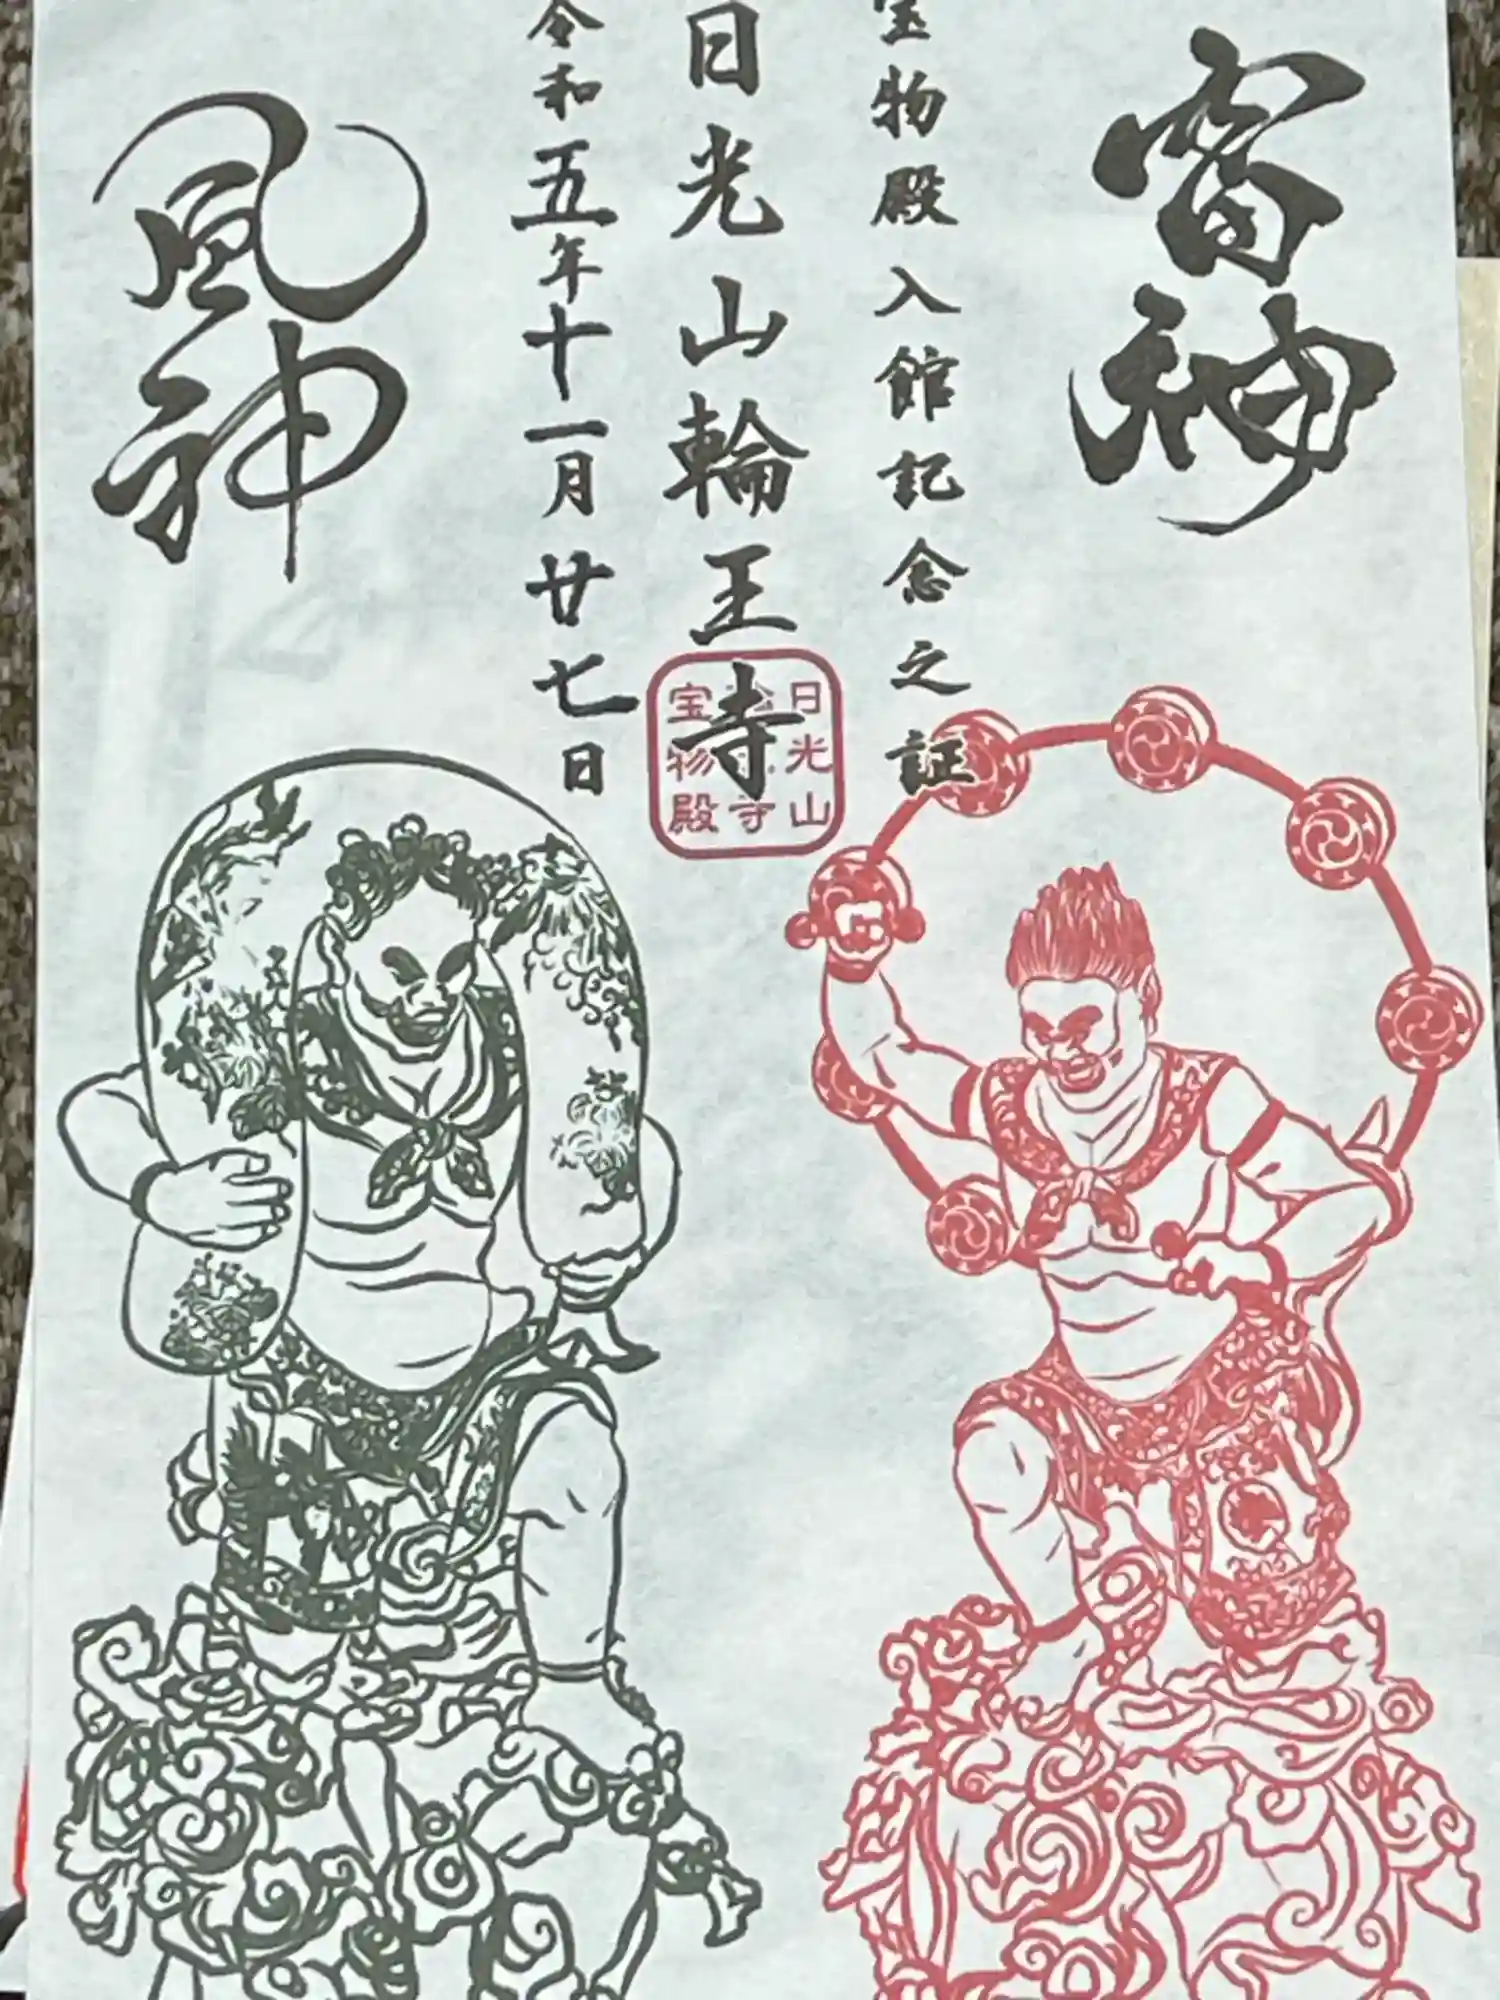 雷神
宝物殿入館記念之証
日光山輪王寺
令和五年十一月廿七日
風神
日光山
寺
宝物殿